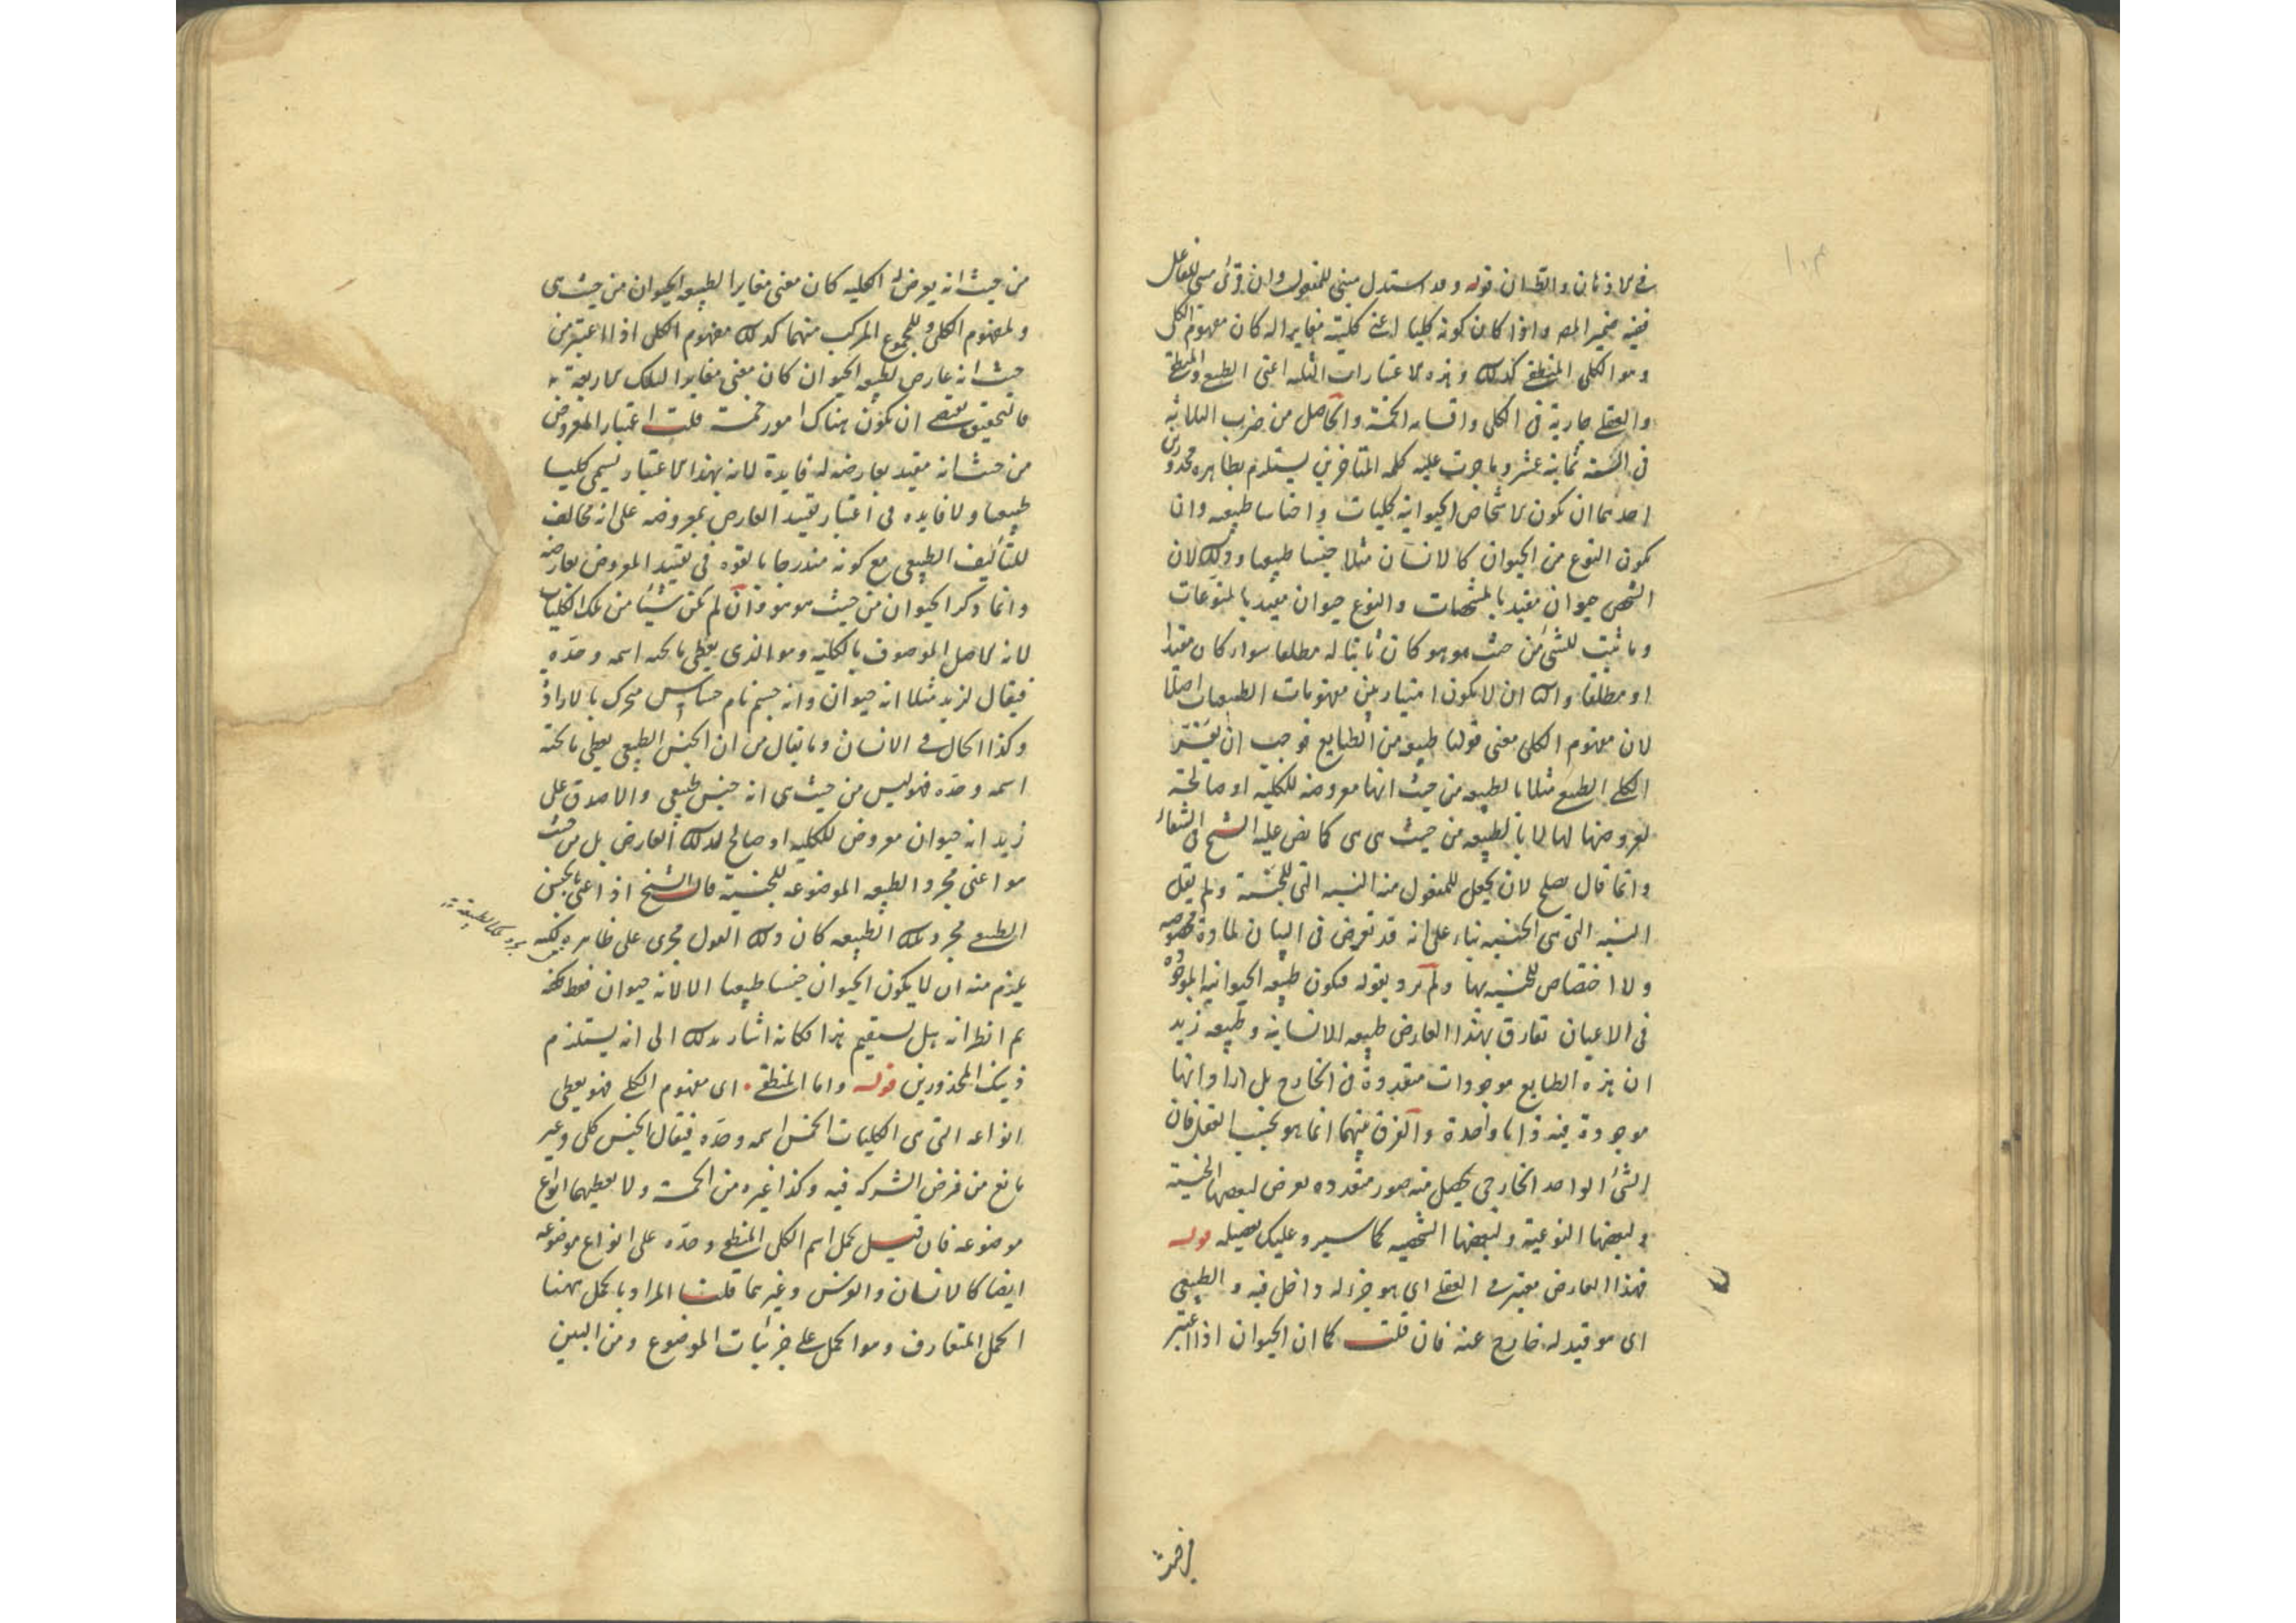 في الاذهان والظ ان قوله وقد استدل مبني للمفعول وان قرئ مبني للفاعل
ففيه ضمير المص واذا كان كونه كليا اعني كليته مغايرا له كان مفهوم الكلي
وهو الكلي المنطقي كذلك وهذه الاعتبارات الثلثه اعني الطبيعي والمنطقي
والعقلي جارية في الكلي واقسامه الخمسة والحاصل من ضرب الثلاثة
في الستة ثمانية عشر وما جرت عليه كلمه المتاخرين يستلزم بظاهره محذورين
احدهما ان يكون الاشخاص الحيوانية كليات واجناسا طبيعه وان
يكون النوع من الحيوان كالانسان مثلا جنسا طبيعيا وذلك لان
الشخص حيوان مقيد بالمشخصات والنوع حيوان مقيد بالمنوعات
وما ثبت للشئ من حيث هو هو كان ثابتا له مطلقا سواء كان مقيدا
او مطلقا والثا ان لا يكون امتياز بين مفهومات الطبيعيات اصلا
لان مفهوم الكلي معنى قولنا طبيعه من الطبايع فوجب ان يفسر
الكلي الطبيعي مثلا بالطبيعه من حيث انها معروضه للكليه او صالحة
لعروضها لها لا بالطبيعه من حيث هي هي كما نص عليه الشيخ في الشفاء
وانما قال يصلح لان يجعل للمعقول منه النسبه التي للجنسية ولم يقل
النسبه التي هي الجنسيه بناء على انه قد تعرض في البيان لمادة مخصوصه
ولا اختصاص للجنسيه بها ولم يرد بقوله فكون طبيعه الحيوانية الموجوده
في الاعيان تفارق بهذا العارض طبيعه الانسانية وطبيعه زيد
ان هذه الطبايع موجودات متعددة في الخارج بل اراد انها
موجودة فيه ذاتا واحدة والفرق بينهما انما هو بحسب العقل فان
الشئ الواحد الخارجي يحصل منه صور متعدده يعرض لبعضها الجنسية
ولبعضها النوعية ولبعضها الشخصيه كما سيرد عليك تفصيله قوله
فهذا العارض معتبر في العقلي اي هو جزء له داخل فيه والطبيعي
اي هو قيد له خارج عنه فان قلت كما ان الحيوان اذا اعتبر
من حيث
من حيث انه يعرض له الكليه كان معنى مغايرا لطبيعه الحيوان من حيث هي
ولمفهوم الكلي وللمجموع المركب منهما كذلك مفهوم الكلي اذا اعتبر من
حيث انه عارض لطبيعه الحيوان كان معنى مغايرا لتلك الاربعة
فالتحقيق يقتضي ان يكون هناك امور خمسة قلت اعتبار المعروض
من حيث انه مقيد بعارضه له فايدة لانه بهذا الاعتبار يسمى كليا
طبيعيا ولا فايده في اعتبار تقييد العارض بمعروضه على انه مخالف
للتأليف الطبيعي مع كونه مندرجا بالقوه في تقييد المعروض بعارضه
وانما ذكر الحيوان من حيث هو هو وان لم يكن شيئا من تلك الكليات
لانه الاصل الموصوف بالكليه وهو الذي يعطي ما تحته اسمه وحده
فيقال لزيد مثلا انه حيوان وانه جسم نام حساس متحرك بالارادة
وكذا الحال في الانسان وما يقال من ان الجنس الطبيعي يعطي ما تحته
اسمه وحده فهو ليس من حيث هي انه جنس طبيعي والا صدق على
زيد انه حيوان معروض للكليه او صالح لذلك العارض بل من حيث
هو اعني مجرد الطبيعه الموضوعه للجنسية قال الشيخ اذا عنى بالجنس
الطبيعي مجرد تلك الطبيعه كان ذلك القول مجرى على ظاهره لكنه
يلزم منه ان لا يكون الحيوان جنسا طبيعيا الا لانه حيوان فقط
ثم انظر انه هل يستقيم هذا فكانه اشار بذلك الى انه يستلزم
ذينك المحذورين قوله واما المنطقي اي مفهوم الكلي فهو يعطي
انواعه التي هي الكليات الخمس اسمه وحده فيقال الجنس كلي وغير
مانع من فرض الشركه فيه وكذا غيره من الخمسة ولا يعطيها انواع
موضوعه فان قيل يحمل اسم الكلي المنطقي وحده على انواع موضوعه
ايضا كالانسان والفرس وغيرهما قلت المراد بالحمل ههنا
الحمل المتعارف وهو الحمل على جزئيات الموضوع ومن البين